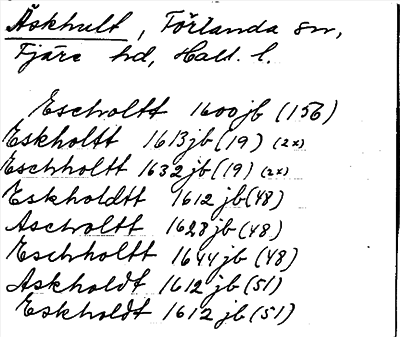 Äskhult, Förlanda sn,
Fjäre hd, Hall. l.
Escholtt 1600 jb (156)
Eskholtt 1613 jb (19) (2x)
Eschholtt 1632 jb (19) (2x)
Eskholdtt 1612 jb (48)
Ascholtt 1628 jb (48)
Eschholtt 1644 jb (48)
Askholdt 1612 jb (51)
Eskholdt 1612 jb (51)